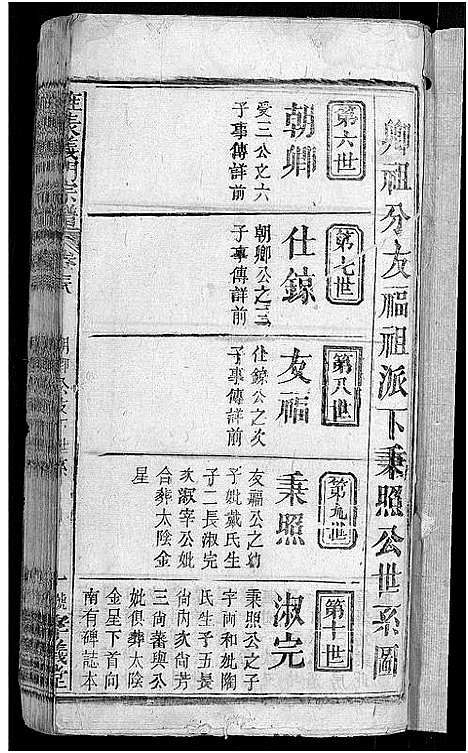 卿祖分友福祖派下秉照公世系圖
第六世
朝卿
受三公之六
子事傳詳前
第七世
仕鍄
朝卿公之三
子事傳詳前
第八世
友福
仕鍄公之次
子事傳詳前
第九世
秉照
友福公之幼
子妣戴氏生
子二長淑完
次淑宰公妣
合葬太陰金
星
第十世
淑完
秉照公之子
字両和妣陶
氏生子五長
尙內次尙芳
三尙蕃與公
妣俱葬太陰
金星下首向
南有碑誌本
義門宗譜